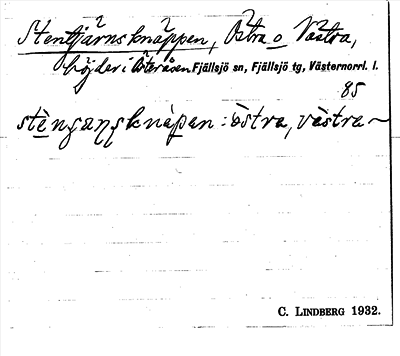 Stentjärnsknäppen, Östra o Västra,
höjder i Österåsen Fjällsjö sn, Fjällsjö tg, Västernorrl. l.
85
: östra, västra ~
C. LINDBERG 1932.